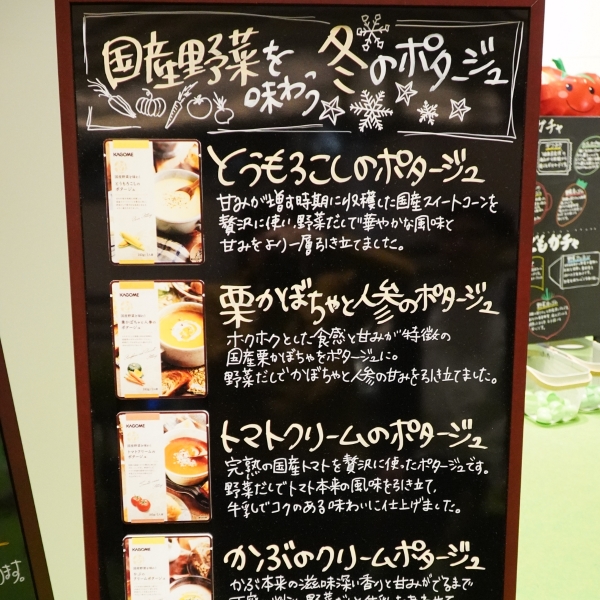 国産野菜を
味わう
冬のポタージュ
KAGOME
とうもろこしの
ポタージュ
とうもろこしのポタージュ
甘みが増す時期に収穫した国産スイートコーンを
贅沢に使い、野菜だしで華やかな風味と
甘みをより一層引き立てました。
KAGOME
栗かぼちゃと人参の
ポタージュ
栗かぼちゃと人参のポタージュ
ホクホクとした食感と甘みが特徴の
国産栗かぼちゃをポタージュに。
野菜だしでかぼちゃと人参の甘みを引き立てました。
KAGOME
トマトクリームの
ポタージュ
トマトクリームのポタージュ
完熟の国産トマトを贅沢に使ったポタージュです。
野菜だしでトマト本来の風味を引き立て、
牛乳でコクのある味わいに仕上げました。
KAGOME
かぶの
クリームポタージュ
かぶのクリームポタージュ
かぶ本来の滋味深い香りと甘みがでるまで
ガチャ
もガチャ
ます。